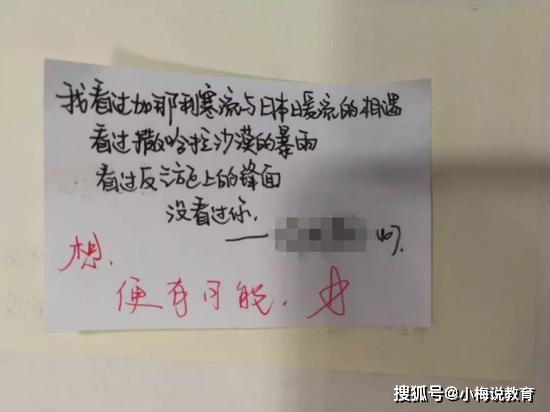 我看过加那利寒流与日本暖流的相遇
看过撒哈拉沙漠的暴雨
看过反气旋上的锋面
没看过你.
——
想.
便有可能.
搜狐号@小梅说教育